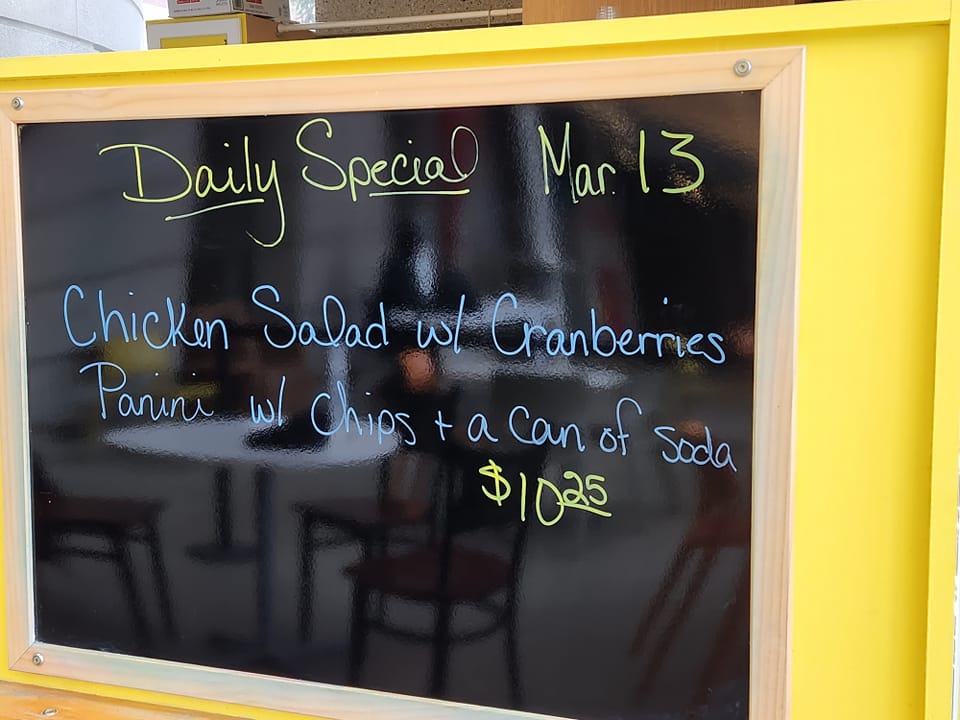 Daily Special Mar. 13
Chicken Salad w/ Cranberries
Panini w/ chips + a can of soda
$10.25